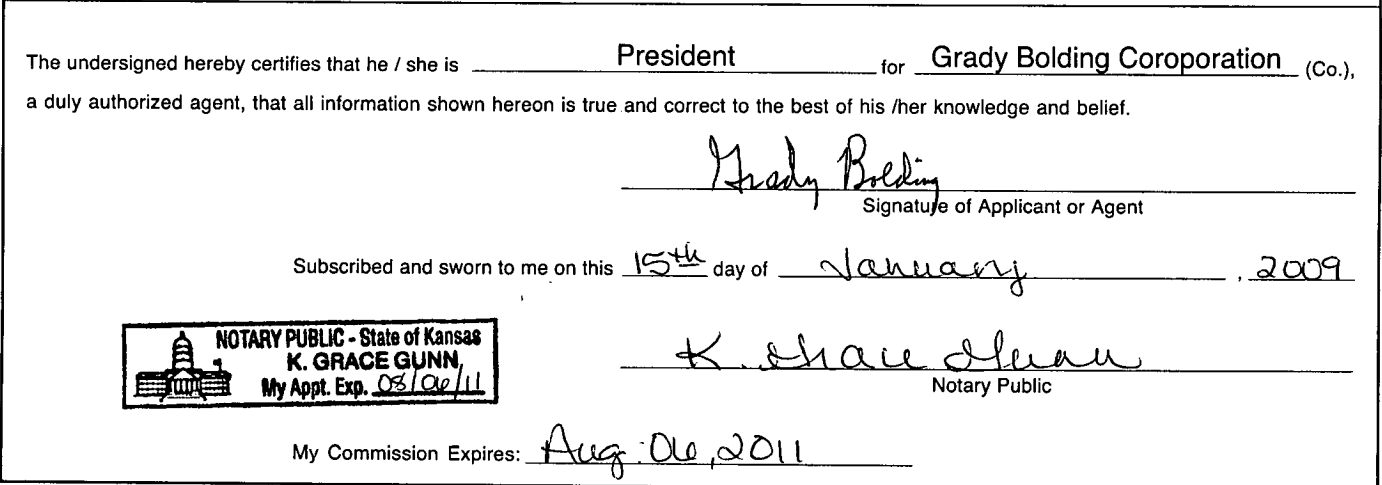 The undersigned hereby certifies that he / she is President for Grady Bolding Coroporation (Co.),
a duly authorized agent, that all information shown hereon is true and correct to the best of his /her knowledge and belief.
Grady Bolding
Signature of Applicant or Agent
Subscribed and sworn to me on this 15th day of January , 2009
NOTARY PUBLIC - State of Kansas
K. GRACE GUNN
My Appt. Exp. 08/06/11
K. Grace Gunn
Notary Public
My Commission Expires: Aug. 06, 2011